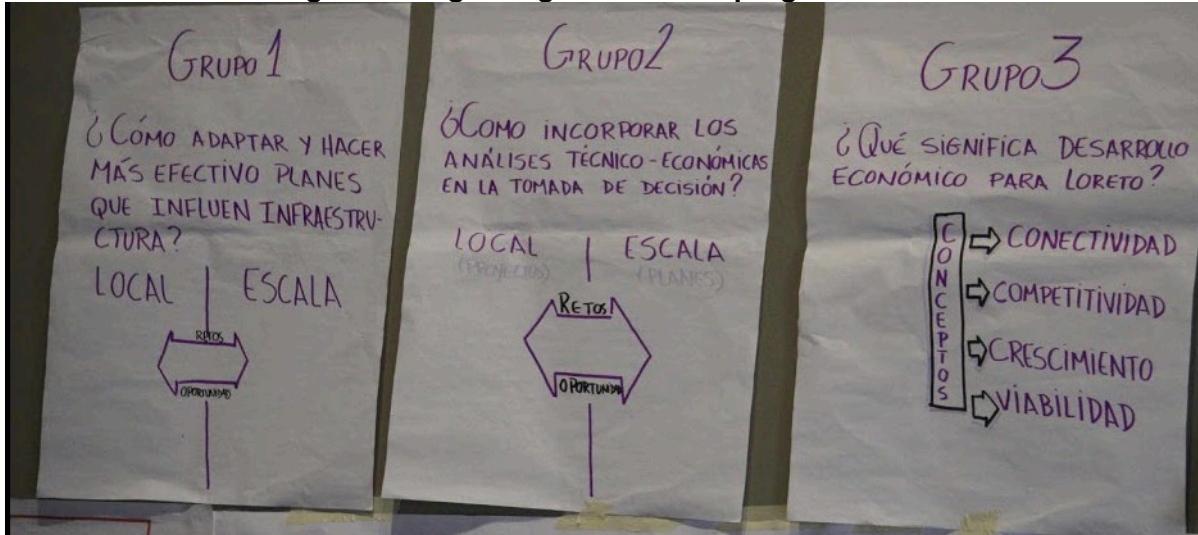 GRUPO 1
¿CÓMO ADAPTAR Y HACER
MÁS EFECTIVO PLANES
QUE INFLUEN INFRAESTRU-
CTURA?
LOCAL | ESCALA
RETOS
OPORTUNIDAD
GRUPO 2
¿COMO INCORPORAR LOS
ANÁLISES TÉCNICO-ECONÓMICAS
EN LA TOMADA DE DECISIÓN?
LOCAL | ESCALA
(PROYECTOS) (PLANES)
RETOS
OPORTUNIDAD
GRUPO 3
¿QUÉ SIGNIFICA DESARROLLO
ECONÓMICO PARA LORETO?
CONCEPTOS
CONECTIVIDAD
COMPETITIVIDAD
CRESCIMIENTO
VIABILIDAD